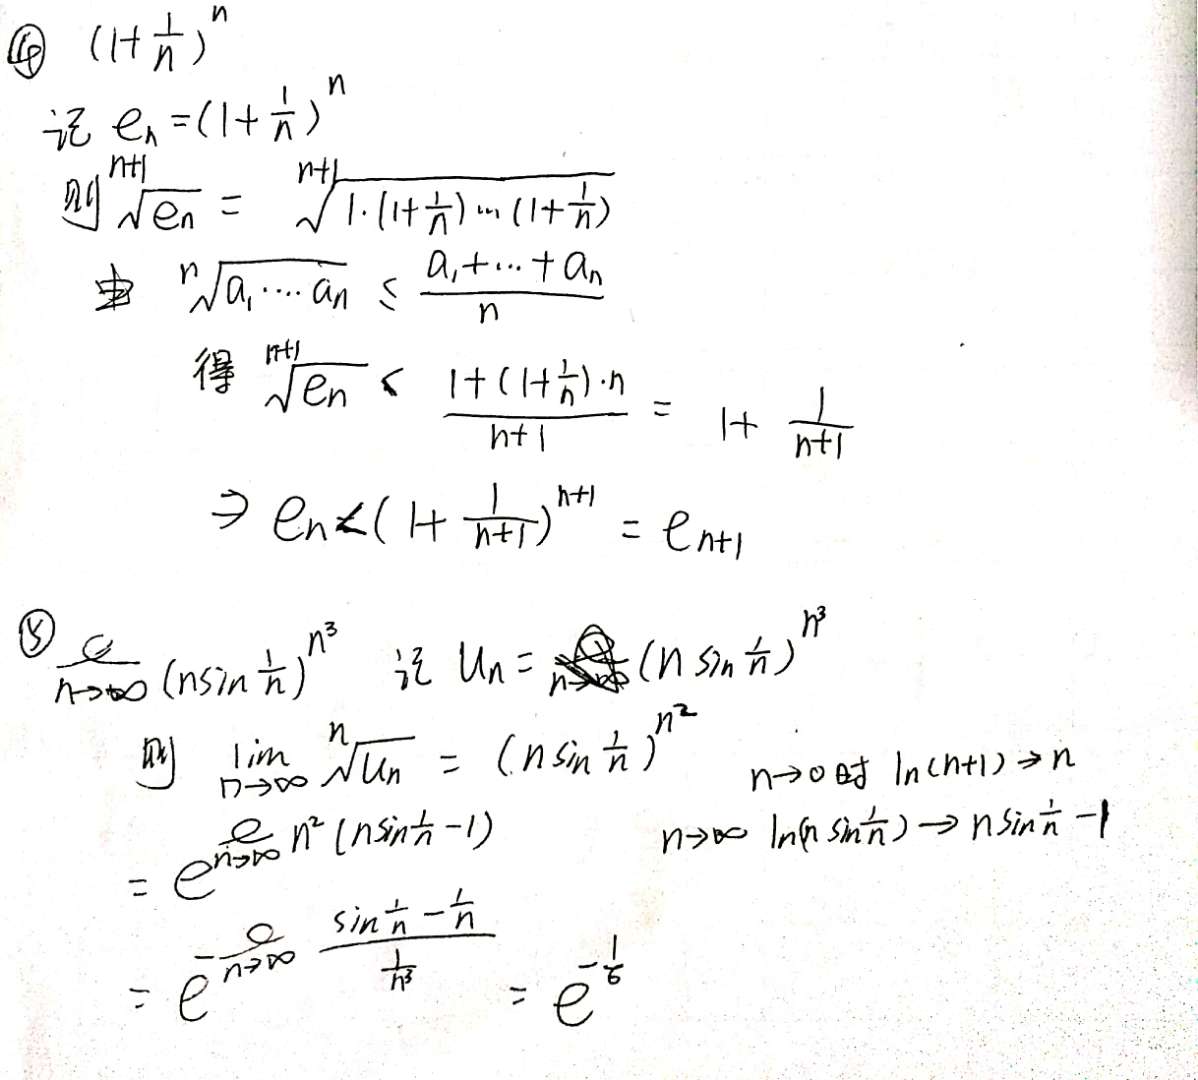 ④ (1+1/n)^n
记 e_n=(1+1/n)^n
则 ^{n+1}√e_n = ^{n+1}√(1·(1+1/n)…(1+1/n))
由 ^n√(a_1…a_n) ≤ (a_1+…+a_n)/n
得 ^{n+1}√e_n < (1+(1+1/n)·n)/(n+1) = 1+ 1/(n+1)
⇒ e_n<(1+ 1/(n+1))^{n+1} = e_{n+1}
⑤ ℓ_{n→+∞} (n sin 1/n)^{n^3} 记 u_n= (n sin 1/n)^{n^3}
则 lim_{n→∞} ^n√u_n = (n sin 1/n)^{n^2}
n→0时 ln(n+1)→n
= e^{ℓ_{n→∞} n^2(n sin 1/n -1)}
n→∞ ln(n sin 1/n)→n sin 1/n -1
= e^{-ℓ_{n→∞} (sin 1/n - 1/n)/(1/n^3)} = e^{-1/6}